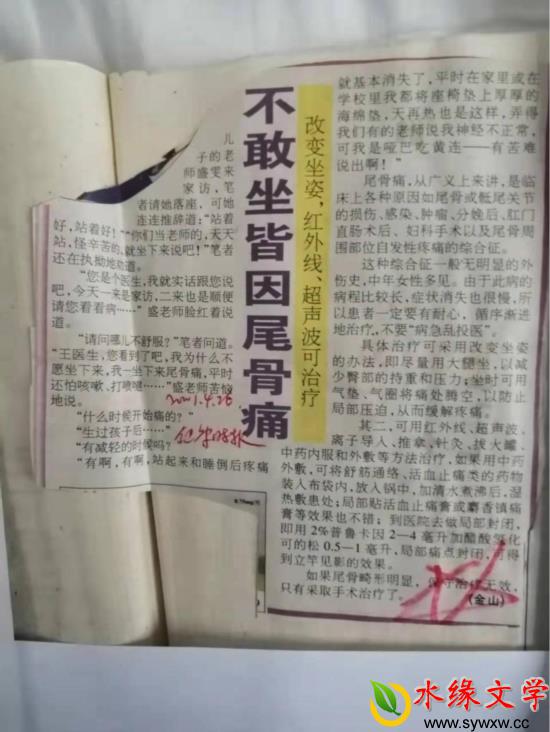 不敢坐皆因尾骨痛
改变坐姿，红外线、超声波可治疗
儿
子的老
师盛雯来
家访，笔
者请她落座，可她
连连推辞道：“站着
好，站着好！”“你们当老师的，天天
站，怪辛苦的，就坐下来说吧！”笔者
还在执拗地劝道。
“您是个医生，我就实话跟您说
吧，今天一来是家访，二来也是顺便
请您看看病……”盛老师脸红着说
道。
“请问哪儿不舒服？”笔者问道。
“王医生，您看到了吧，我为什么不
愿坐下来，我一坐下来就尾骨痛，平时
还怕咳嗽、打喷嚏……”盛老师苦恼
地说。
“什么时候开始痛的？”
“生过孩子后……”
“有减轻的时候吗？”
“有啊，有啊，站起来和睡倒后疼痛
2001.4.26
就基本消失了，平时在家里或在
学校里我都将座椅垫上厚厚的
海绵垫，天再热也是这样，弄得
我们有的老师说我神经不正常，
可我是哑巴吃黄连——有苦难
说出啊！”
尾骨痛，从广义上来讲，是临
床上各种原因如尾骨或骶尾关节
的损伤、感染、肿瘤、分娩后、肛门
直肠术后、妇科手术以及尾骨周
围部位自发性疼痛的综合征。
这种综合征一般无明显的外
伤史，中年女性多见。由于此病的
病程比较长，症状消失也很慢，所
以患者一定要有耐心，循序渐进
地治疗，不要“病急乱投医”。
具体治疗可采用改变坐姿
的办法，即尽量用大腿坐，以减
少臀部的持重和压力；坐时可用
气垫、气圈将痛处腾空，以防止
局部压迫，从而缓解疼痛。
其二，可用红外线、超声波、
离子导入、推拿、针灸、拔火罐、
中药内服和外敷等方法治疗，如果用中药
外敷，可将舒筋通络、活血止痛类的药物
装入布袋内，放入锅中，加清水煮沸后，湿
热敷患处；局部贴活血止痛膏或麝香镇痛
膏等效果也不错；到医院去做局部封闭，
即用2%普鲁卡因2—4毫升加醋酸氢化
可的松0.5—1毫升，局部痛点封闭，可得
到立竿见影的效果。
如果尾骨畸形明显，保守治疗无效，
只有采取手术治疗了。
（金山）
水缘文学
www.sywxw.cc